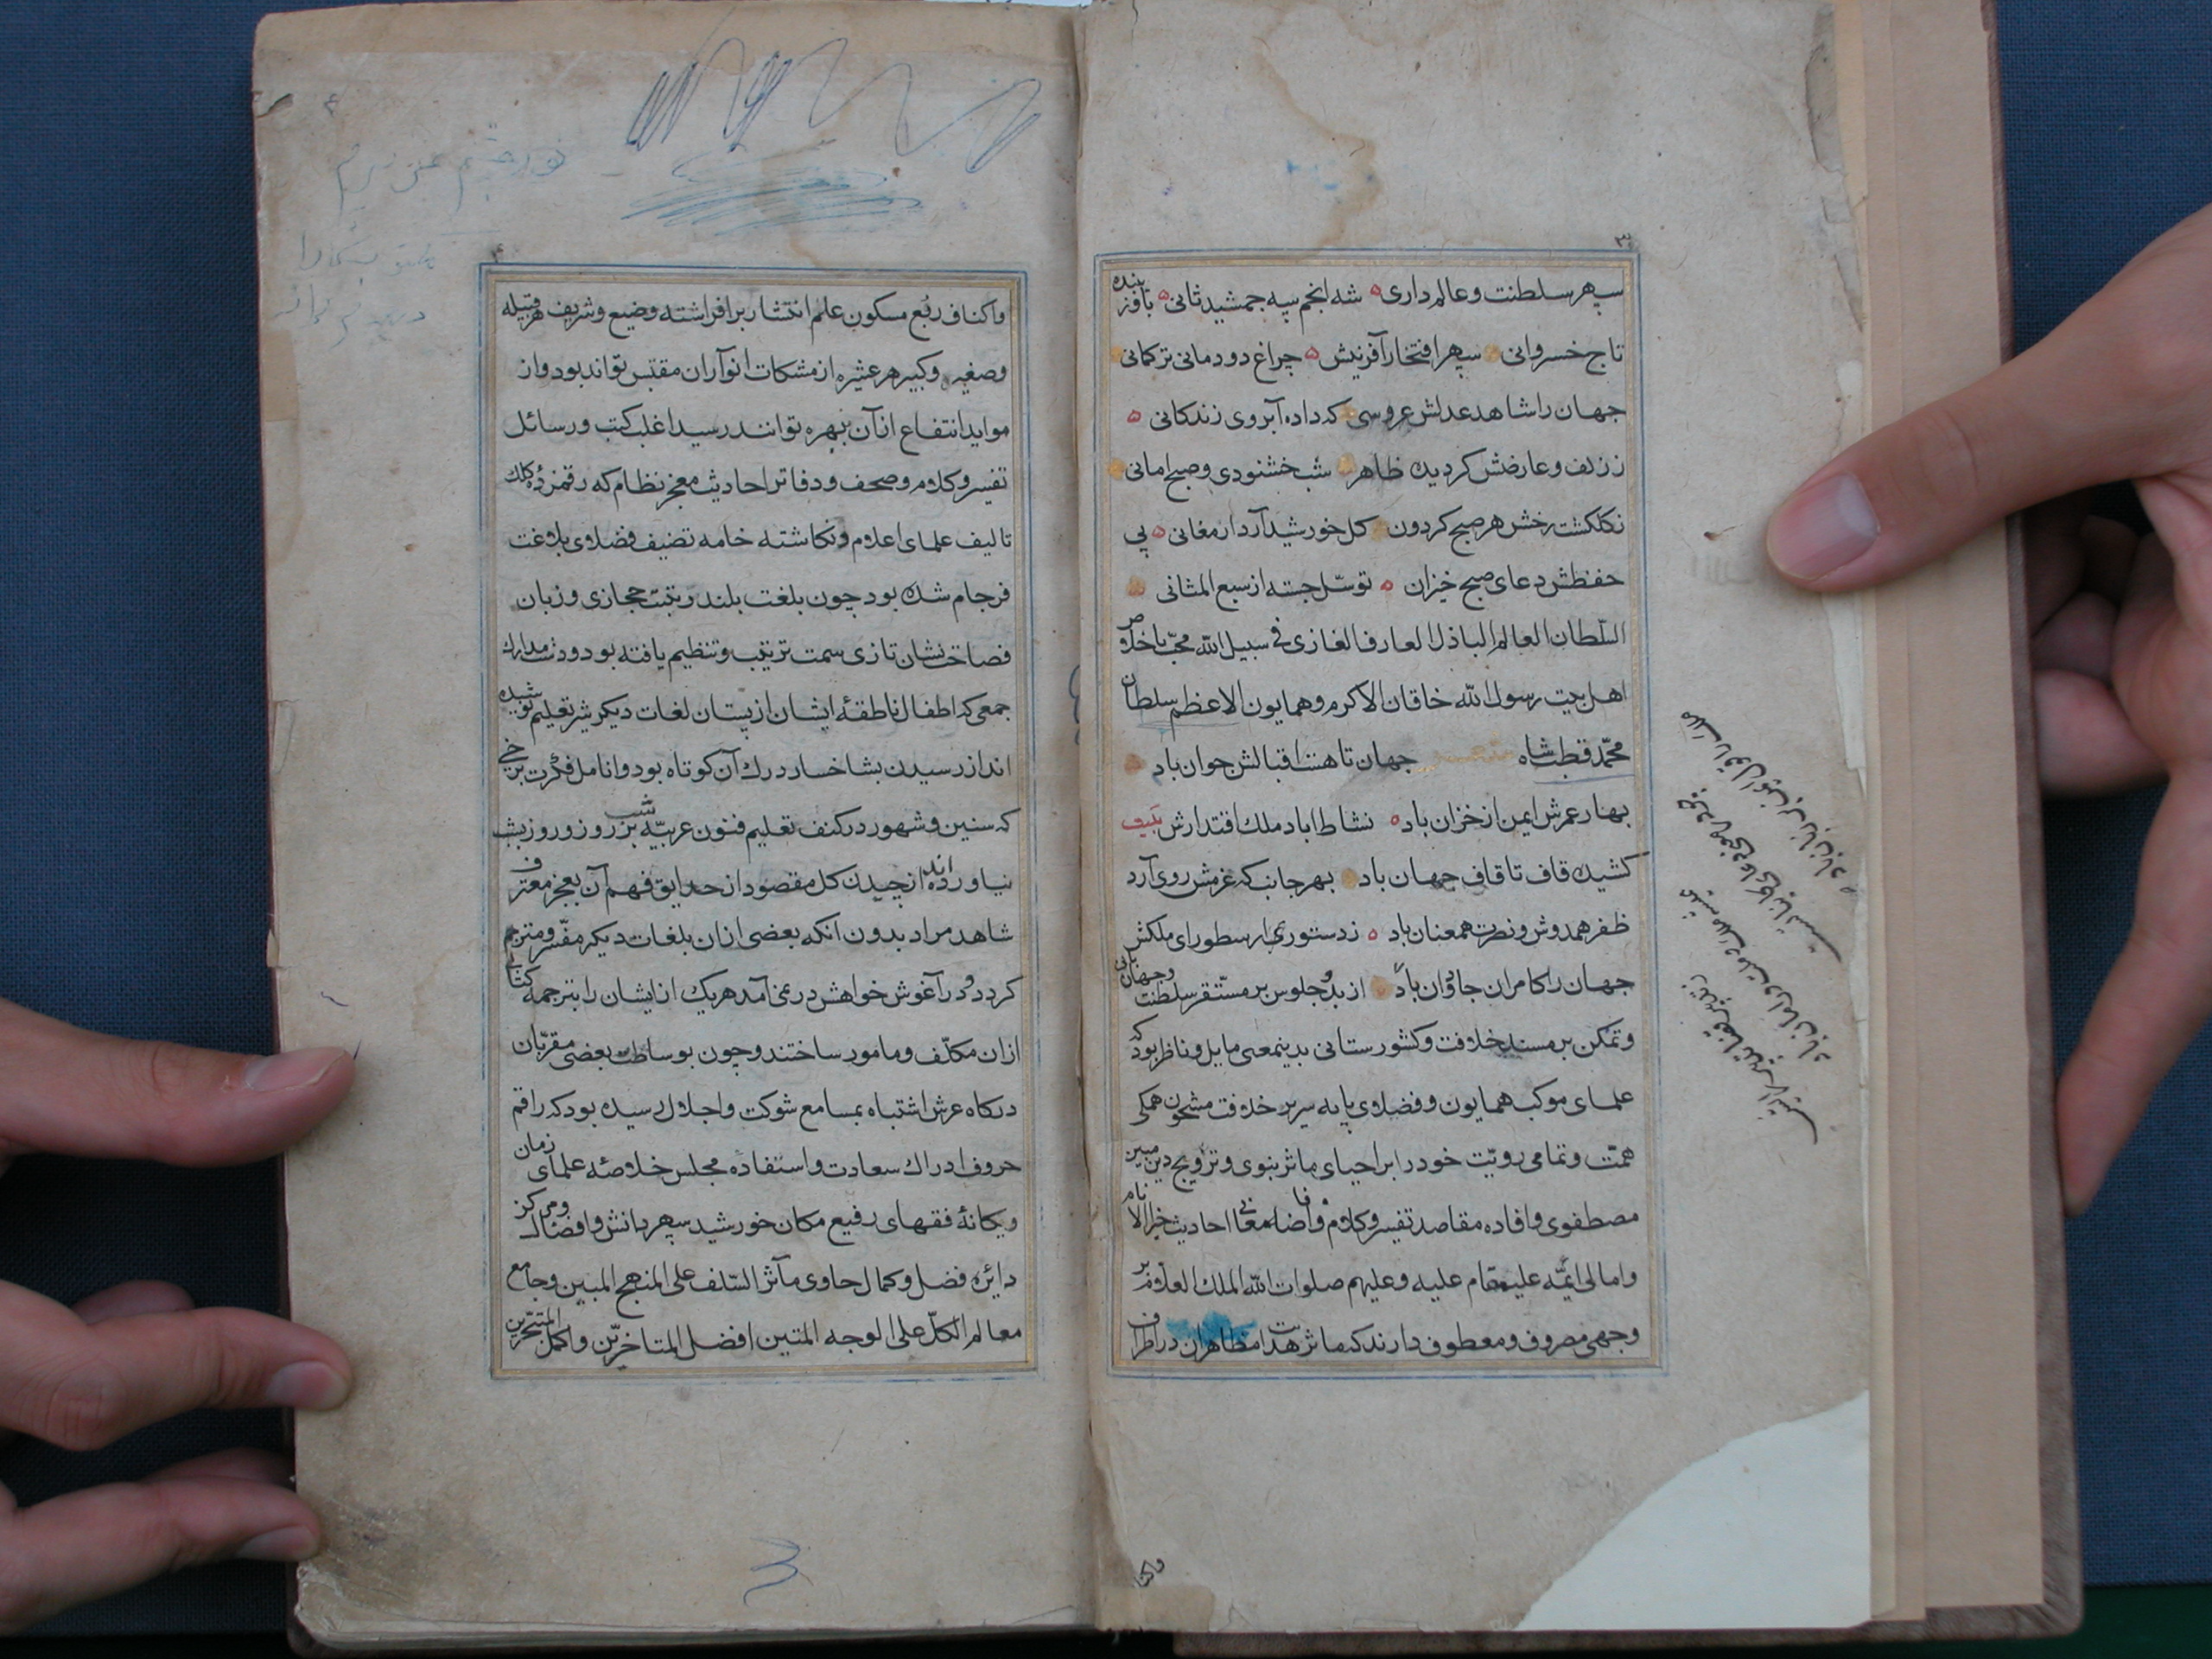 ۳
سپهر سلطنت و عالم داری ه شه انجم سپه جمشید ثانی ه بافزبنده
تاج خسروانی سپهر افتخار آفرینش ه چراغ دودمانی ترکمانی
جهان را شاهد عدلش عروسی که داده آبروی زندکانی ه
ز زلف و عارضش کردیده ظاهر شب خشنودی و صبح امانی
نکلکشت رخش هر صبح کردون کل خورشید آرد ارمغانی ه پی
حفظش دعای صبح خیزان ه توسّل جسته از سبع المثانی
السّلطان العالم الباذل العارف الغازی فی سبیل الله محبّ باخلاص
اهل بیت رسول الله خاقان الاکرم و همایون الاعظم سلطان
محمّد قطبشاه جهان تا هست اقبالش جوان باد
بهار عمرش ایمن از خزان باد ه نشاط اباد ملک اقتدارش
کشیده قاف تا قاف جهان باد بهر جانب که عزمش روی آرد
ظفر همدوش و نصرت همعنان باد ه ز دستوری ارسطو رای ملکش
جهان را کامران جاودان باد از بدو جلوس بر مستقر سلطنت و جهانبانی
و تمکن بر مسند خلافت و کشورستانی بدینمعنی مایل و ناظر بود که
علمای موکب همایون و فضلای پایه سریر خلافت مشحون همکی
همّت و تمامی رویّت خود را بر احیای ماثر نبوی و ترویج دین مبین
مصطفوی و افاده مقاصد تفسیر و کلام و افاضه معانی احادیث خیر الانام
و امالی ایمّه علیمقام علیه و علیهم صلوات الله الملک العلام بر
وجهی مصروف و معطوف دارند که ماثر هدایت مظاهر ان در اطراف
واکنا
۴
واکناف ربع مسکون علم انتشار بر افراشته وضیع و شریف هر قبیله
وصغیر و کبیر هر عشیره از مشکات انوار آن مقتبس تواند بود و از
مواید انتفاع از آن ببهره توانند رسید اغلب کتب و رسائل
تفسیر و کلام و صحف و دفاتر احادیث معجز نظام که رقمزده کلک
تالیف علمای اعلام و نکاشته خامه تصنیف فضلای بلاغت
فرجام شده بود چون بلغت بلند رتبت حجازی و زبان
فصاحت نشان تازی سمت ترتیب و تنظیم یافته بود و دست مدارک
جمعی که اطفال ناطقهٔ ایشان از پستان لغات دیکر شیر تعلیم نوشیده
اند از رسیدن بشاخسار درک آن کوتاه بود و انامل فکرت برخی
که سنین و شهور در کنف تعلیم فنون عربیّه شب بروز و روز بشب
نیاورده اند از چیدن کل مقصود از حدایق فهم آن بعجز معترف
شاهد مراد بدون انکه بعضی از ان بلغات دیکر مفسّر و مترجم
کردد در آغوش خواهش در نمی آمد هریک از ایشان را بترجمه کتابی
از ان مکلّف و مامور ساختند و چون بوساطت بعضی مقرّبان
درکاه عرش اشتباه بمسامع شوکت و اجلال رسیده بود که راقم
حروف ادراک سعادت و استفاده مجلس خلاصه علمای زمان
و یکانهٔ فقهای رفیع مکان خورشید سپهر دانش و افضال و مرکز
دائره فضل و کمال حاوی مآثر السّلف علی المنهج المبین و جامع
معالم الکلّ علی الوجه المتین افضل المتاخرین و اکمل المتبحّرین